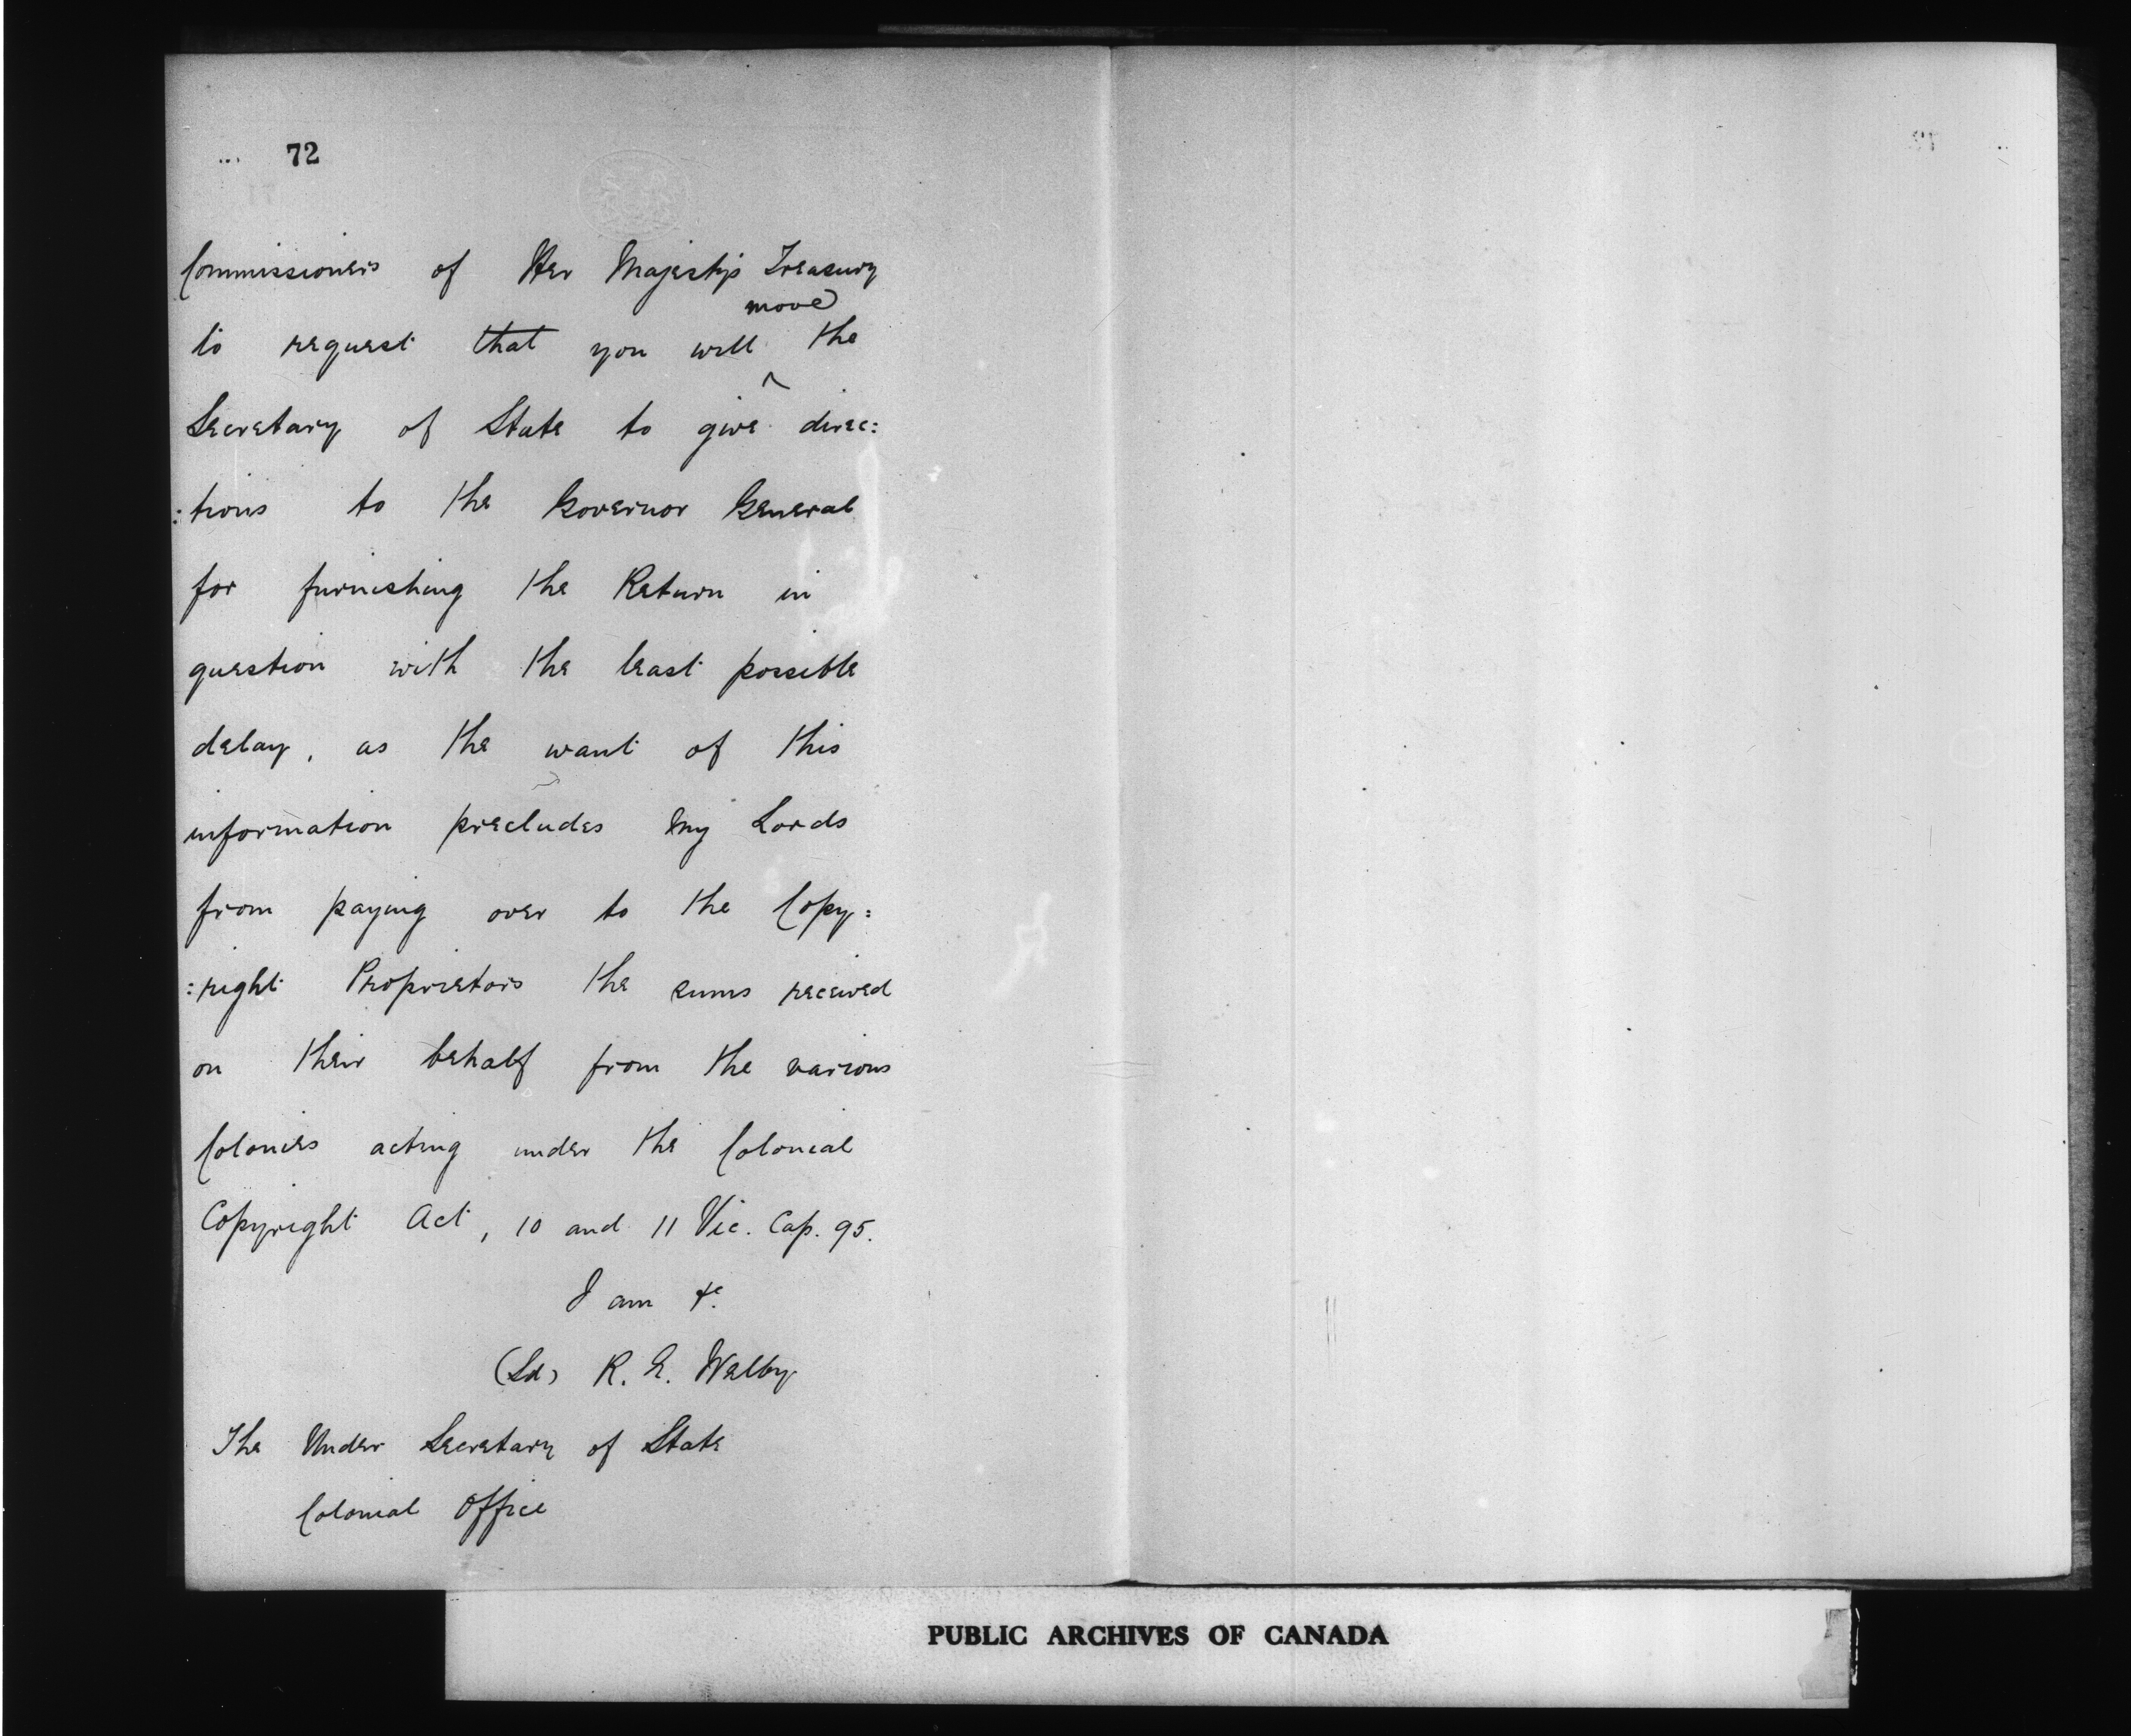 72
Commissioners of Her Majesty's Treasury
move
to request that you will ^ the
Secretary of State to give direc:
:tions to the Governor General
for furnishing the Return in
question with the least possible
delay, as the want of this
information precludes My Lords
from paying over to the Copy:
:right Proprietors the sums received
on their behalf from the various
Colonies acting under the Colonial
Copyright Act, 10 and 11 Vic. Cap. 95.
I am &c.
(Sd) R. E. Welby
The Under Secretary of State
Colonial Office
PUBLIC ARCHIVES OF CANADA